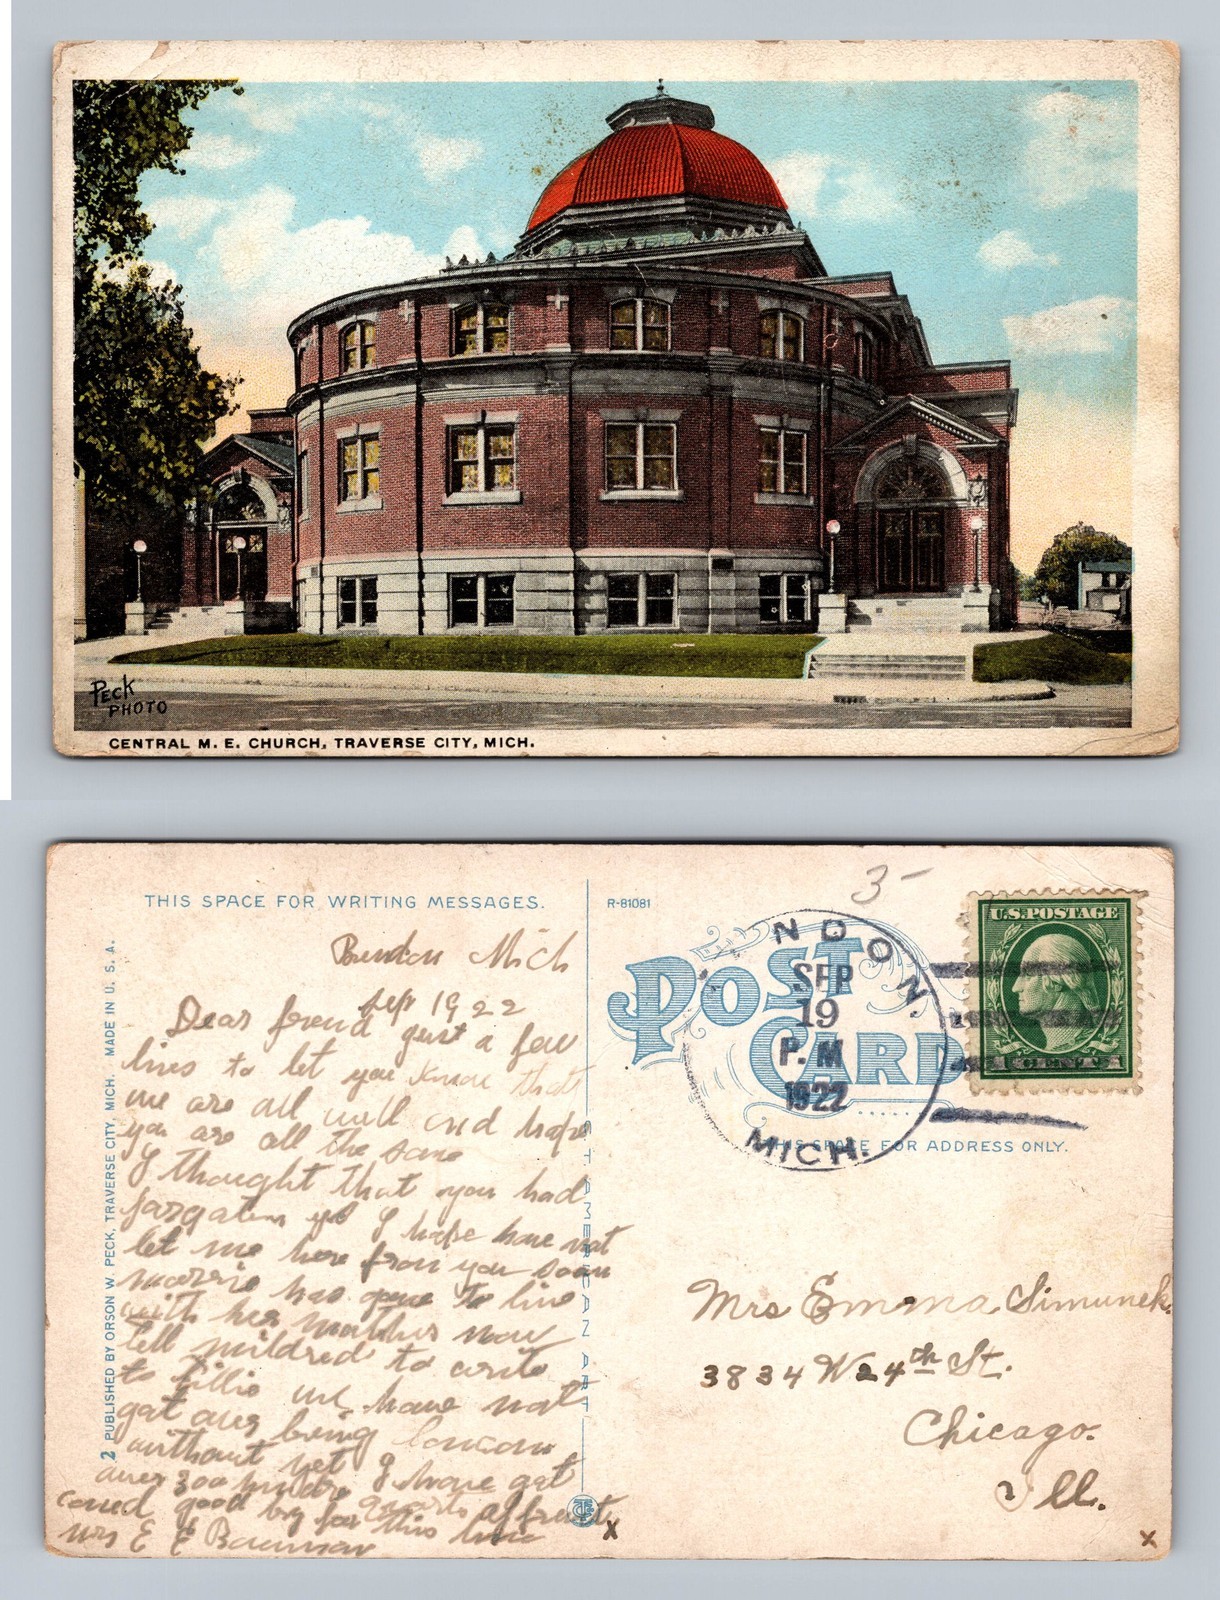 PECK
PHOTO
CENTRAL M. E. CHURCH, TRAVERSE CITY, MICH.
THIS SPACE FOR WRITING MESSAGES.
R-81081
3-
POST
CARD
NDON.
SEP
19
P.M
1922
MICH.
U.S. POSTAGE
THIS SPACE FOR ADDRESS ONLY.
2 PUBLISHED BY ORSON W. PECK, TRAVERSE CITY, MICH. MADE IN U. S. A.
Mich
Sep 1922
Dear freind just a few
lines to let you know that
we are all well and hope
you are all the same
I thought that you had
forgaten I hope have not
let me here from you soon
has gone to live
with her mother now
tell mildred to write
to tillie we have not
got our being
without yet I have got
over 300 hundre quarts of fruit
caned good by for this time
Mrs E E Bauman
Mrs Emma Simunek
3834 W 24th St.
Chicago.
Ill.
x
x